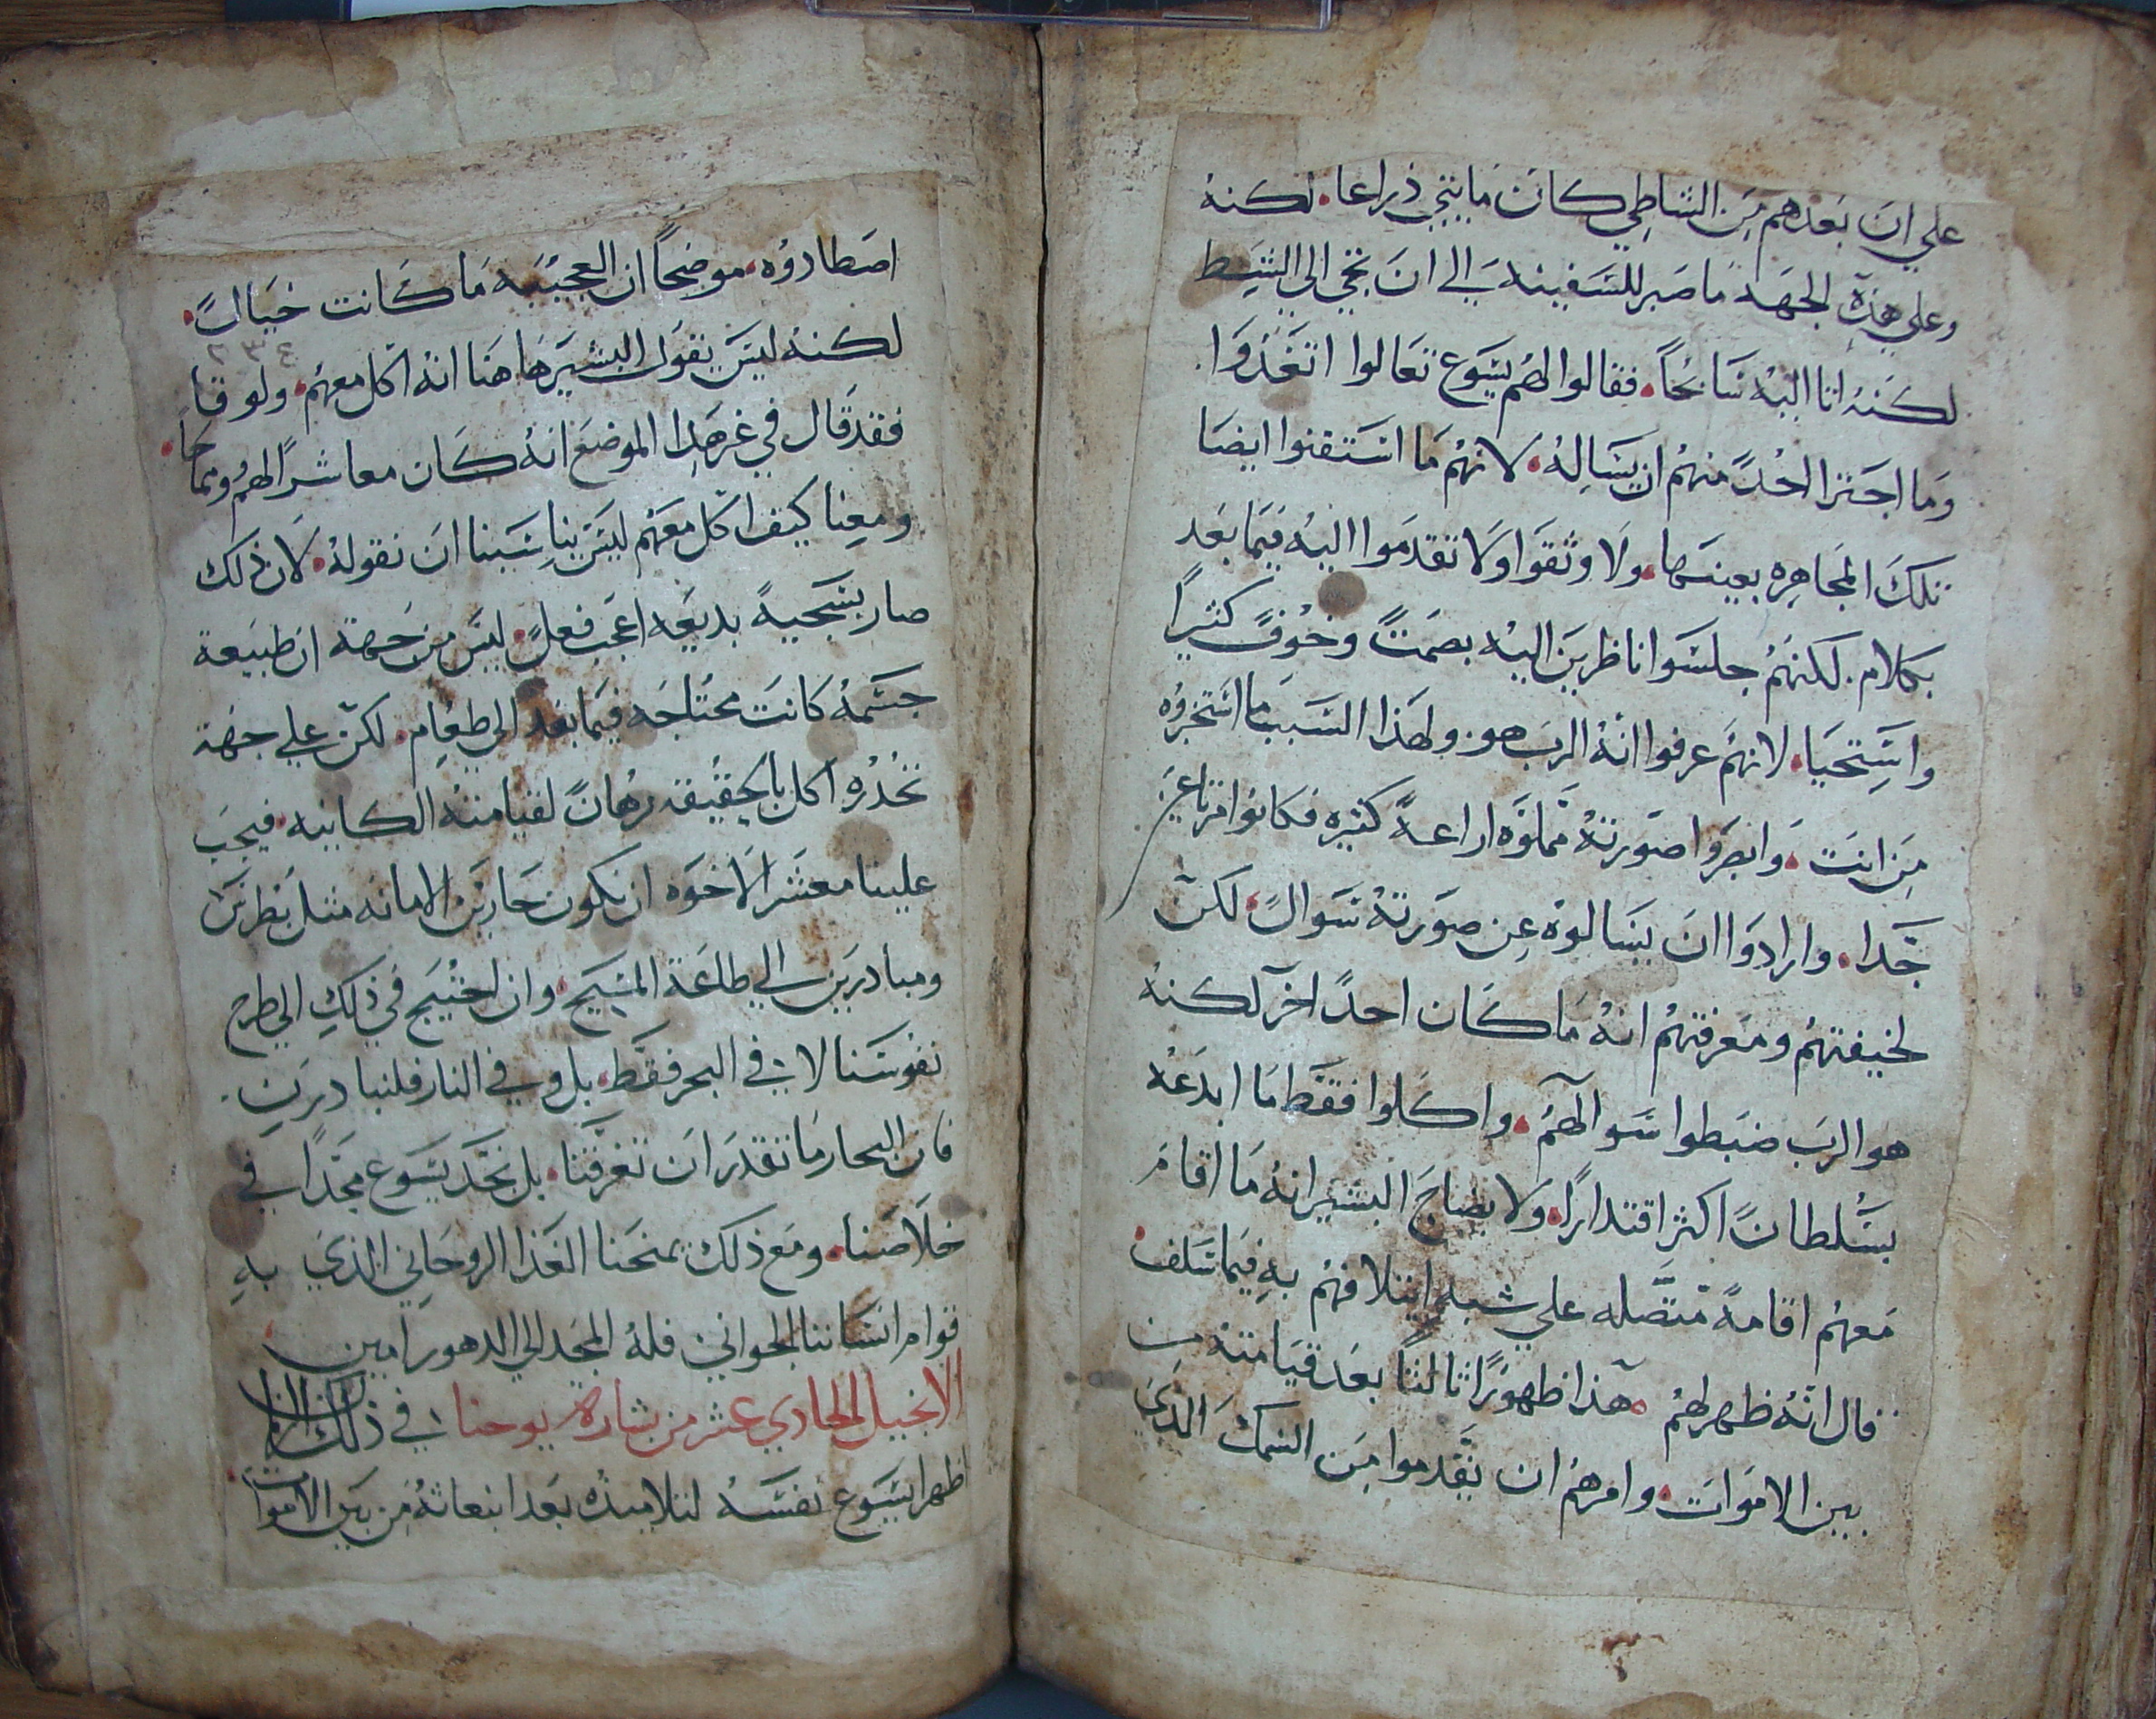 علي ان بعدهم من الشاطي كان مايتي ذراعا. لكنه
وعلي هذه الجهه ما صبر للسفينه الي ان تجي الي الشط
لكنه اتا اليه سابحًا. فقالوا لهم يسوع تعالوا اتغذوا.
وما اجترا احدً منهم ان يساله. لانهم ما استقنوا ايضا
تلك المجاهره بعينها. ولا وثقوا ولا تقدموا اليه فيما بعد
بكلام. لكنهم جلسوا ناظرين اليه بصمتً وخوفً كثيراً
واستحيا. لانهم عرفوا انه الرب هو. ولهذا السبب ما استخبروه
من انت. وابصروا صورته مملوه اراعةً كثيره فكانوا مرتاعين
جدا. وارادوا ان يسالوه عن صورته سوالً. لكن
لخيفتهم ومعرفتهم انه ما كان احدً اخر لكنه
هو الرب ضبطوا سوالهم. واكلوا فقط ما ابدعه
بسلطانً اكثر اقتدارًا. ولا يضاح البشير انه ما اقام
معهم اقامةً متصله علي شبه ايتلافهم به فيما سلف.
قال انه ظهر لهم. هذا ظهورًا ثالثًا بعد قيامته من
بين الاموات. وامرهم ان يقدموا من السمك الذي
اصطادوه. موضحاً ان العجيبه ما كانت خيالً.
لكنه ليس يقول البشير هاهنا انه اكل معهم. ولوقا
٢ ٣ ٤
فقد قال في غير هذا الموضع انه كان معاشرًا لهم وممالحاً.
ومعنا كيف اكل معهم ليس بنا سبنا ان نقوله. لان ذلك
صار بسجيةً بديعه اعجب فعلً. ليس من جهة ان طبيعة
جسمه كانت محتاجه فيما بعد الي طعام. لكن علي جهة
تحذره اكل بالحقيقه برهانً لقيامته الكاينه. فيجب
علينا معشر الاخوه ان نكون حارين الامانه مثل بطرس
ومبادرين الي طاعة المسيح. وان احتيج في ذلك الي طرح
نفوسنا لا في البحر فقط. بل وفي النار فلنبادرن.
فان البحار ما تقدر ان تغرقنا. بل نجد يسوع مجدًا في
خلاصنا. ومع ذلك يمنحنا الغذا الروحاني الذي به
قوام انساننا الجواني فله المجد الي الدهور امين
الانجيل الحادي عشر من بشارة يوحنا في ذلك الزمان
اظهر ايسوع نفسه لتلاميذه بعد انبعاثه من بين الاموات.